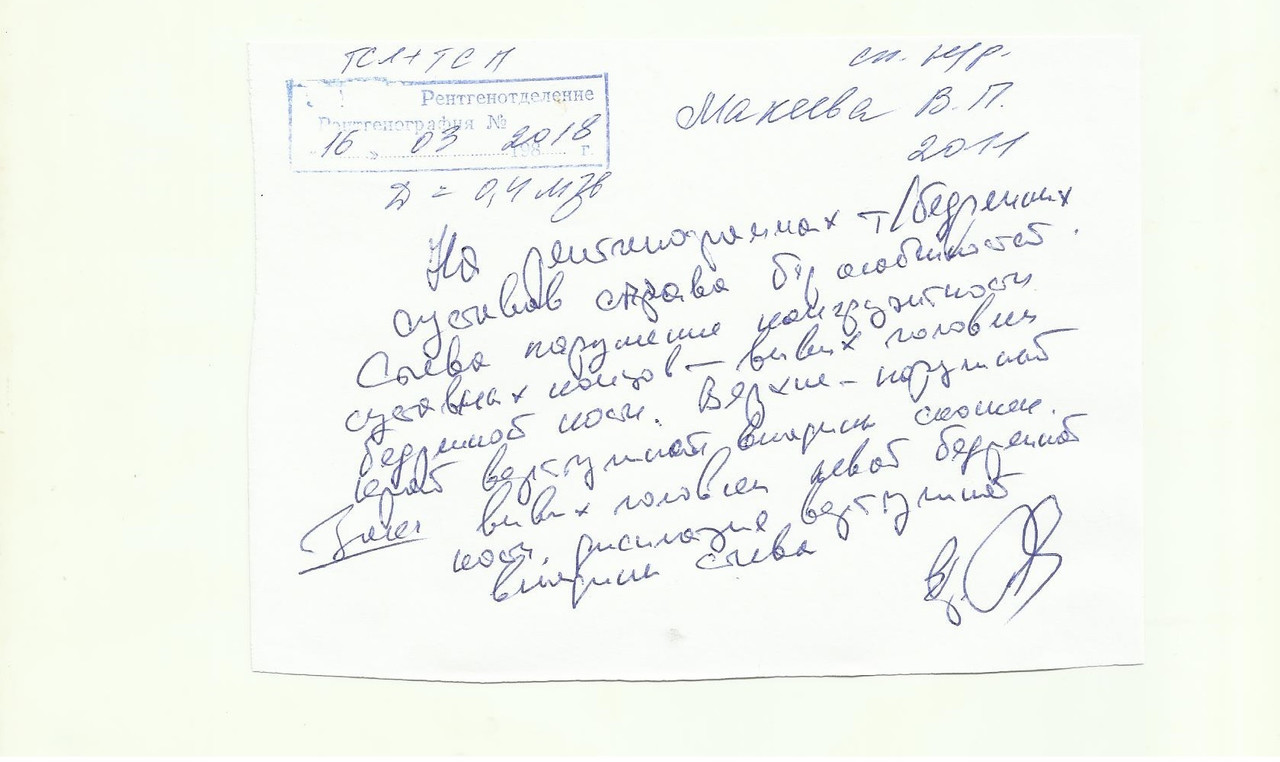 ТСЛ + ТСП
сп. н/р.
Рентгенотделение
Рентгенография №
"16" 03 2018 198 г.
Д = 0,4 мЗв
Макеева В. П.
2011
На рентгенограммах т/бедренных
суставов справа б/особенностей.
Слева нарушение конгруэнтности
суставных концов – вывих головки
бедренной кости. Верхне-наружный
край вертлужной впадины скошен.
Закл вывих головки левой бедренной
кости, дисплазия вертлужной
впадины слева
Вр.